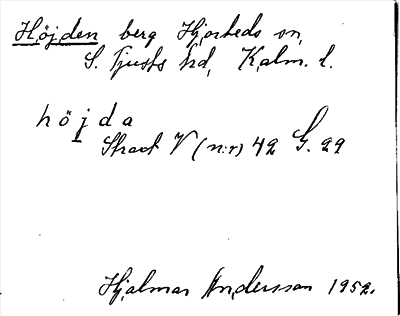 Höjden berg Hjorteds sn,
S. Tjusts hd, Kalm. l.
höjda
Strax V (n:r) 42 G. 29
Hjalmar Andersson 1952.